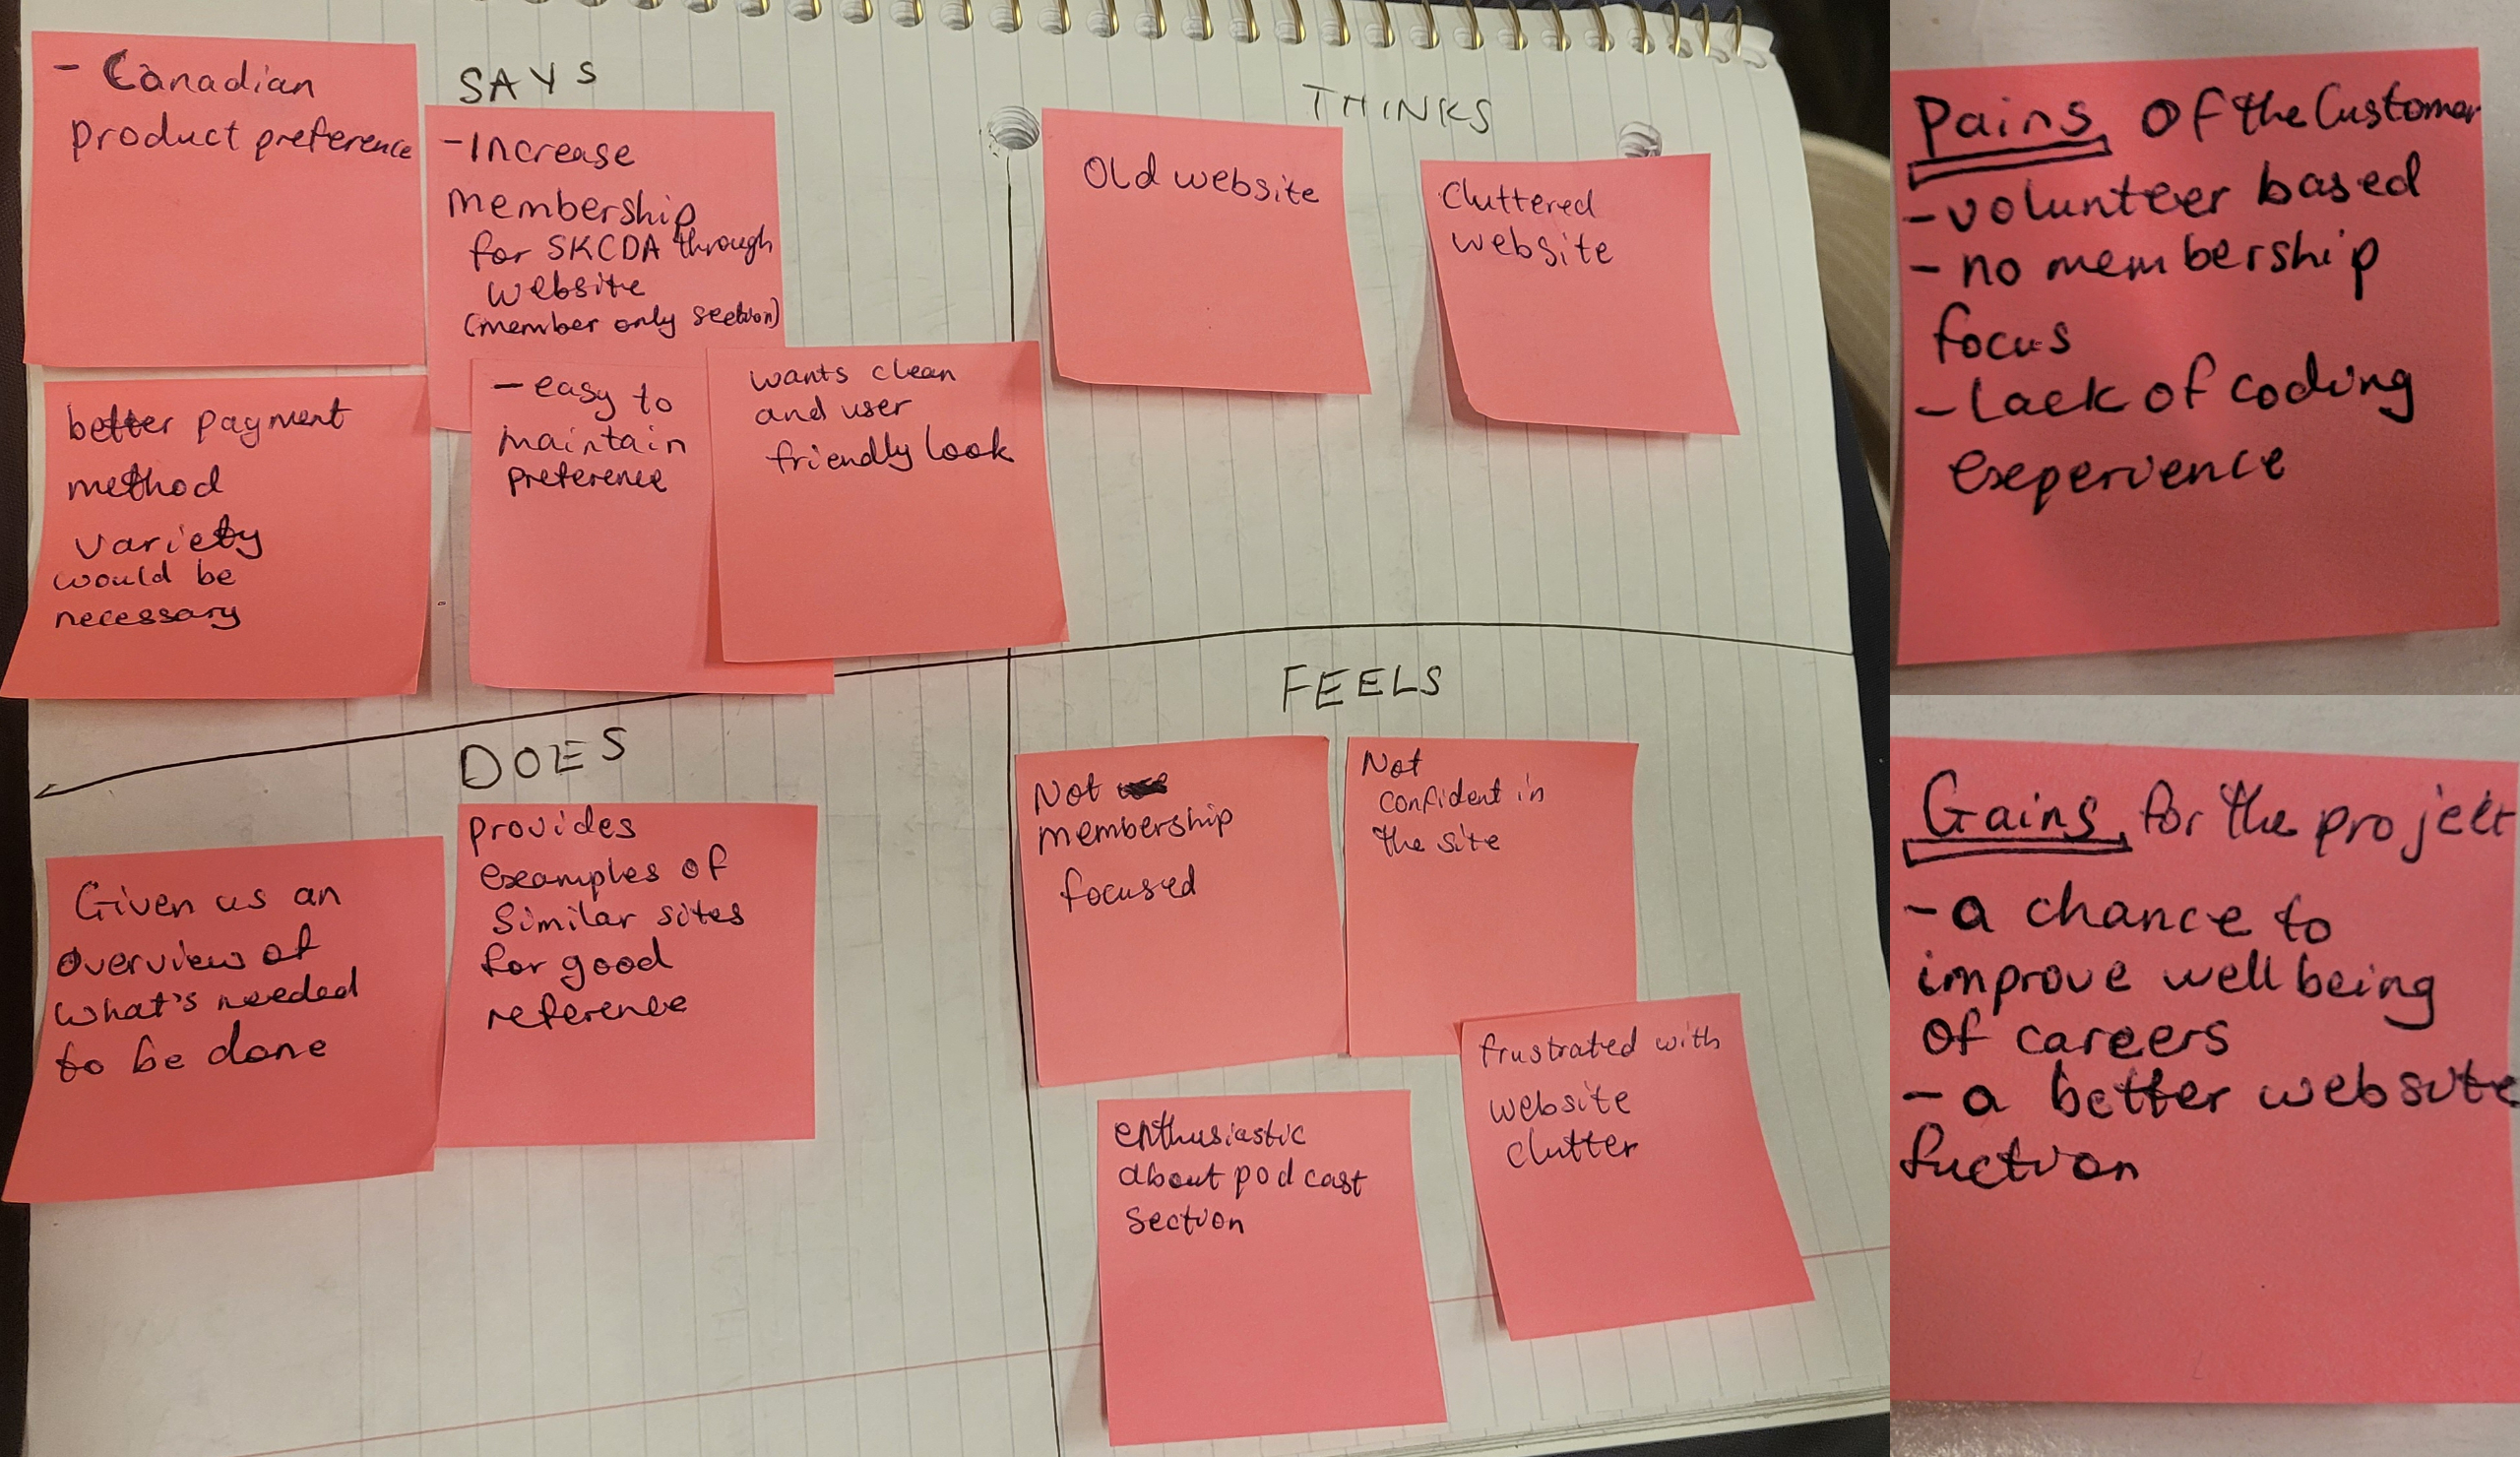 SAYS
- Canadian
product preference
- Increase
membership
for SKCDA through
website
(member only section)
better payment
method
variety
would be
necessary
- easy to
maintain
preference
wants clean
and user
friendly look
THINKS
Old website
Cluttered
website
DOES
Given us an
overview of
what's needed
to be done
provides
examples of
similar sites
for good
reference
FEELS
Not
membership
focused
Not
confident in
the site
enthusiastic
about podcast
section
frustrated with
website
clutter
Pains of the Customer
- volunteer based
- no membership
focus
- lack of coding
exeperience
Gains for the project
- a chance to
improve well being
of careers
- a better website
fuction